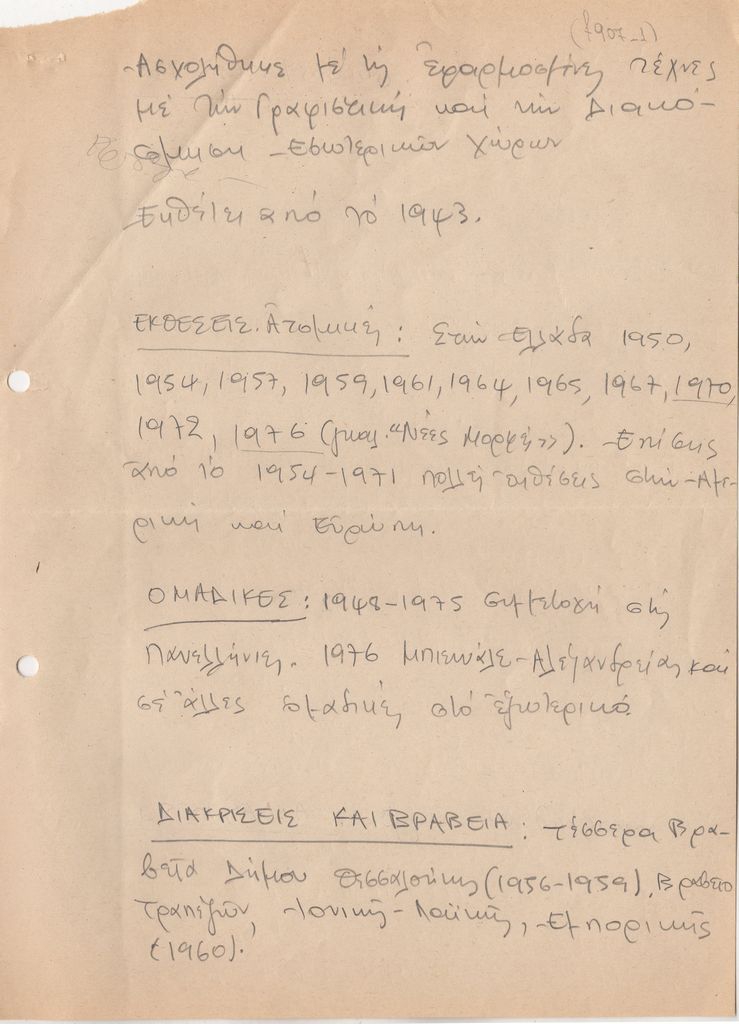 (1907-1)
-Ἀσχολήθηκε μέ τίς ἐφαρμοσμένες τέχνες
μέ τήν Γραφιστική καί τήν Διακό-
σμηση Ἐσωτερικῶν Χώρων
Ἐκθέτει ἀπό τό 1943.
ΕΚΘΕΣΕΙΣ. Ἀτομικές : Στήν Ἑλλάδα 1950,
1954, 1957, 1959, 1961, 1964, 1965, 1967, 1970,
1972, 1976 (γκαλ. "Νέες Μορφές"). Ἐπίσης
ἀπό τό 1954-1971 πολλές ἐκθέσεις στήν Ἀμε-
ρική καί Εὐρώπη.
ΟΜΑΔΙΚΕΣ : 1948-1975 συμμετοχή στίς
Πανελλήνιες. 1976 Μπιενάλε Ἀλεξανδρείας καί
σέ ἄλλες ὁμαδικές στό ἐξωτερικό.
ΔΙΑΚΡΙΣΕΙΣ ΚΑΙ ΒΡΑΒΕΙΑ : τέσσερα Βρα-
βεῖα Δήμου Θεσσαλονίκης (1956-1959), Βραβεῖο
Τραπεζῶν, Ἰονικῆς-Λαϊκῆς, Ἐμπορικῆς
(1960).